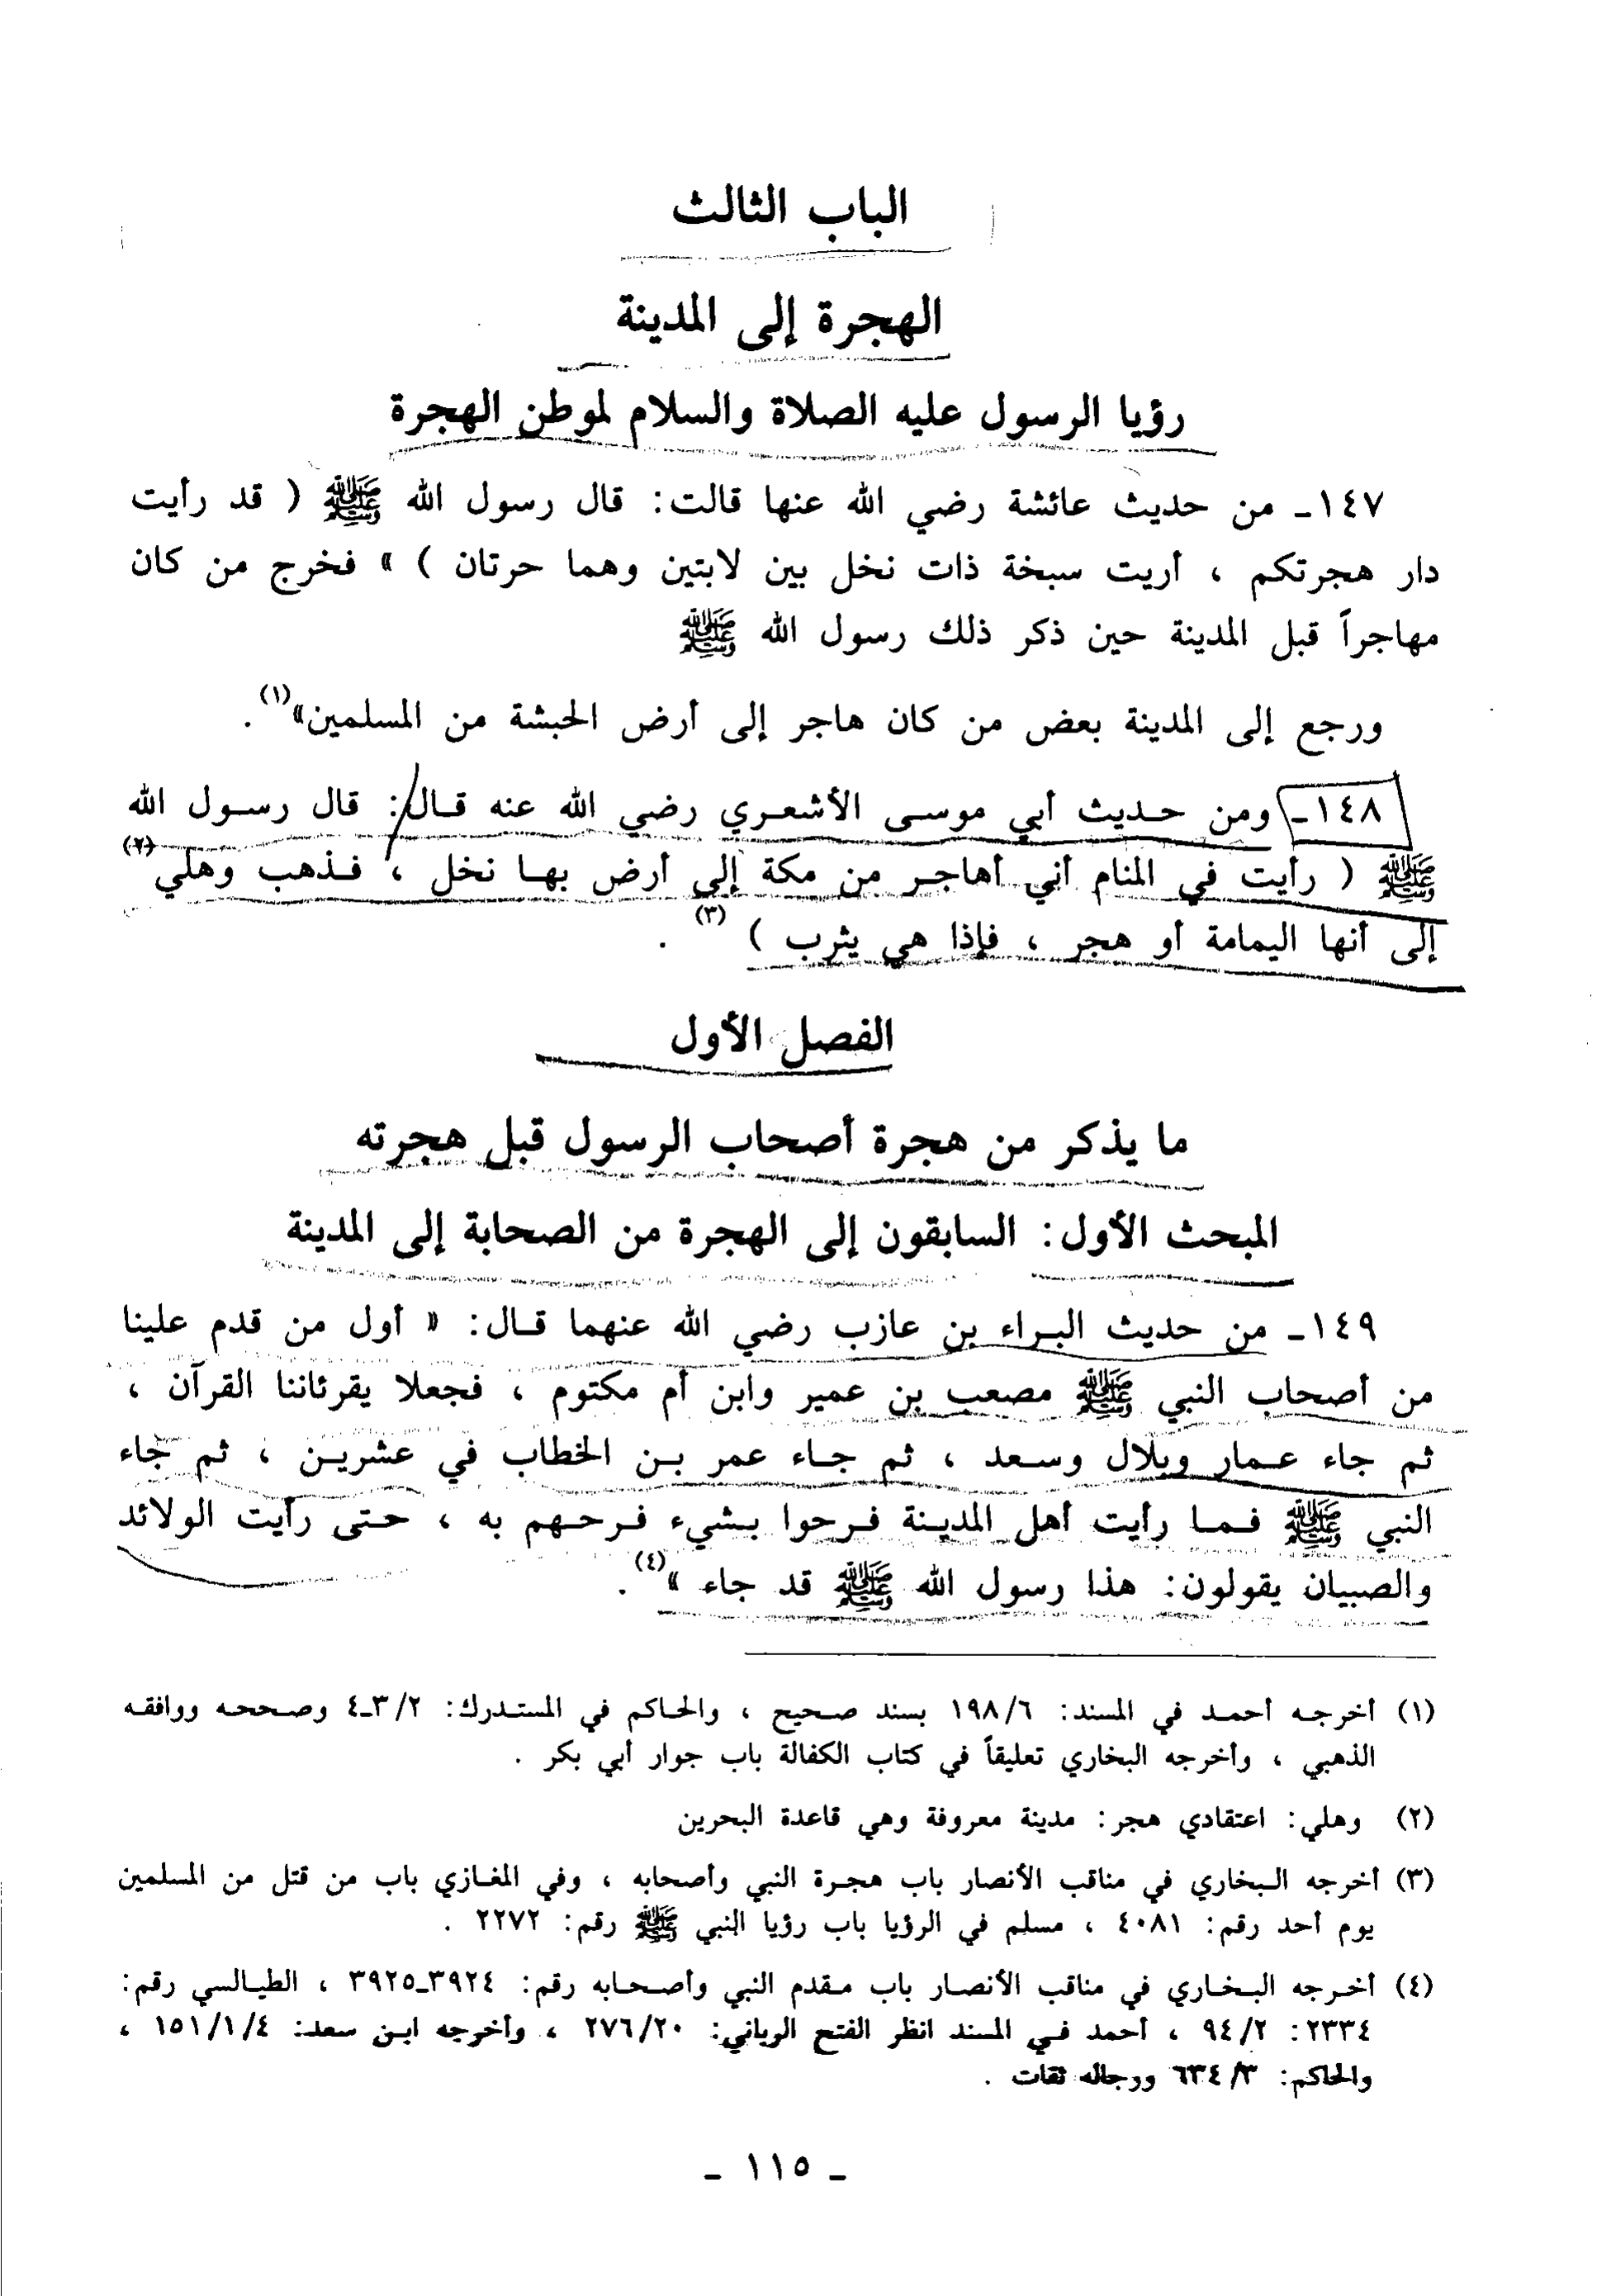 الباب الثالث
الهجرة إلى المدينة
رؤيا الرسول عليه الصلاة والسلام لموطن الهجرة
١٤٧ـ من حديث عائشة رضي الله عنها قالت: قال رسول الله ﷺ ( قد رأيت
دار هجرتكم ، أريت سبخة ذات نخل بين لابتين وهما حرتان ) » فخرج من كان
مهاجراً قبل المدينة حين ذكر ذلك رسول الله ﷺ
ورجع إلى المدينة بعض من كان هاجر إلى أرض الحبشة من المسلمين»(١).
١٤٨ـ ومن حديث أبي موسى الأشعري رضي الله عنه قال: قال رسول الله
ﷺ ( رأيت في المنام أني أهاجر من مكة إلى أرض بها نخل ، فذهب وهلي(٢)
إلى أنها اليمامة أو هجر ، فإذا هي يثرب )(٣) .
الفصل الأول
ما يذكر من هجرة أصحاب الرسول قبل هجرته
المبحث الأول: السابقون إلى الهجرة من الصحابة إلى المدينة
١٤٩ـ من حديث البراء بن عازب رضي الله عنهما قال: « أول من قدم علينا
من أصحاب النبي ﷺ مصعب بن عمير وابن أم مكتوم ، فجعلا يقرئاننا القرآن ،
ثم جاء عمار وبلال وسعد ، ثم جاء عمر بن الخطاب في عشرين ، ثم جاء
النبي ﷺ فما رأيت أهل المدينة فرحوا بشيء فرحهم به ، حتى رأيت الولائد
والصبيان يقولون: هذا رسول الله ﷺ قد جاء »(٤).
(١) أخرجه أحمد في المسند: ١٩٨/٦ بسند صحيح ، والحاكم في المستدرك: ٣/٢ـ٤ وصححه ووافقه
الذهبي ، وأخرجه البخاري تعليقاً في كتاب الكفالة باب جوار أبي بكر .
(٢) وهلي: اعتقادي هجر: مدينة معروفة وهي قاعدة البحرين
(٣) أخرجه البخاري في مناقب الأنصار باب هجرة النبي وأصحابه ، وفي المغازي باب من قتل من المسلمين
يوم أحد رقم: ٤٠٨١ ، مسلم في الرؤيا باب رؤيا النبي ﷺ رقم: ٢٢٧٢ .
(٤) أخرجه البخاري في مناقب الأنصار باب مقدم النبي وأصحابه رقم: ٣٩٢٤ـ٣٩٢٥ ، الطيالسي رقم:
٢٣٣٤: ٩٤/٢ ، أحمد في المسند انظر الفتح الرباني: ٢٧٦/٢٠ ، وأخرجه ابن سعد: ١٥١/١/٤ ،
والحاكم: ٦٣٤/٣ ورجاله ثقات .
ـ ١١٥ ـ